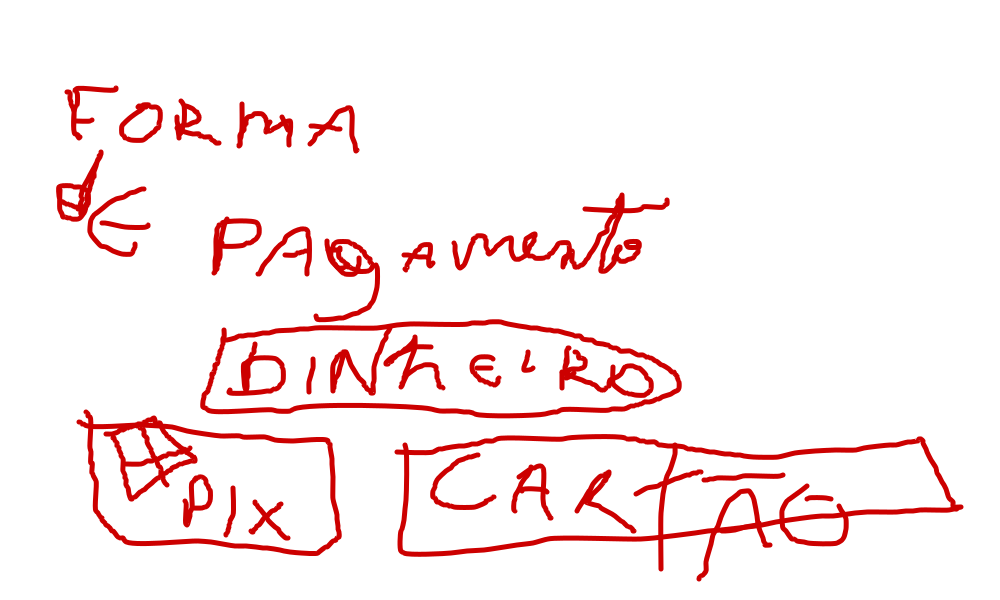 FORMA
DE
PAgamento
DINHEIRO
PIX
CARTÃO